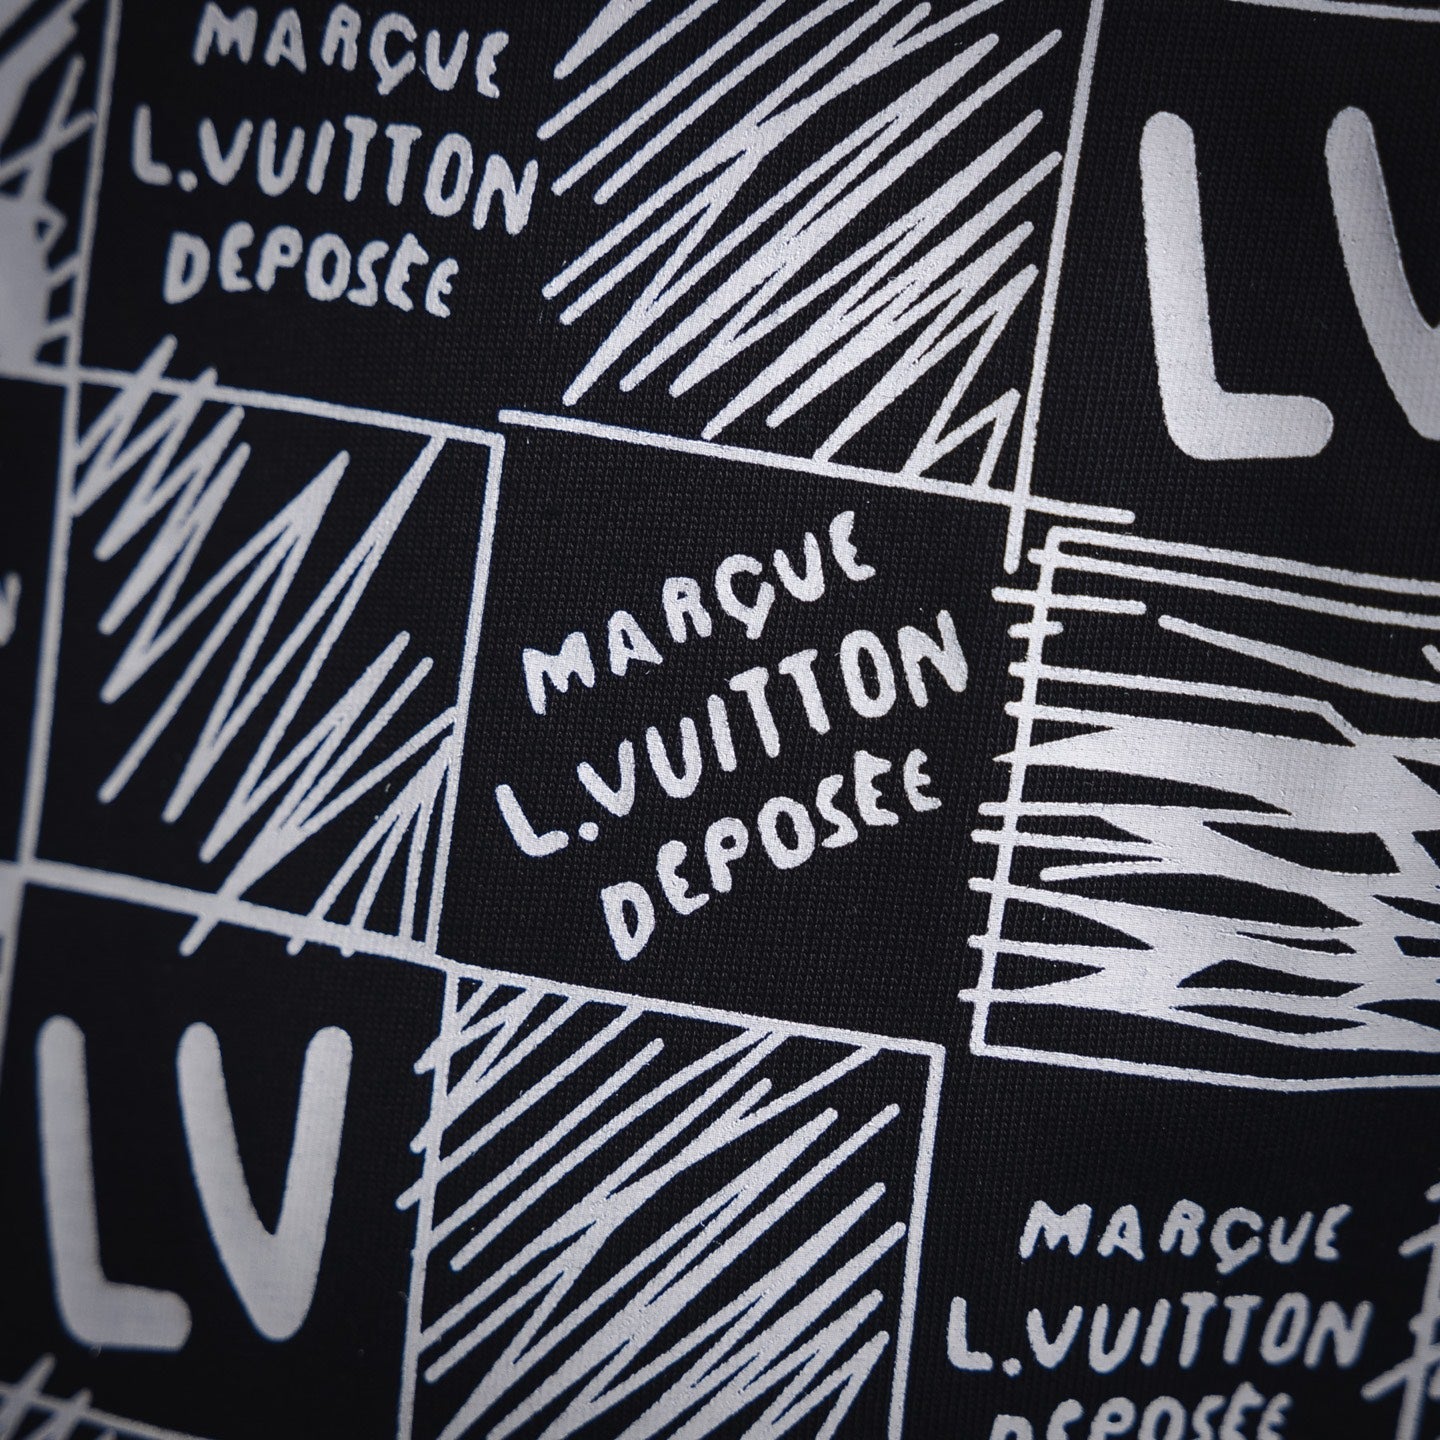 MARÇUE
L.VUITTON
DEPOSÈE
LV
MARÇUE
L.VUITTON
DEPOSÈE
LV
MARÇUE
L.VUITTON
DEPOSÈE